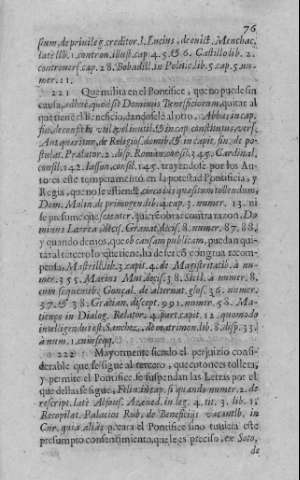 76
sium, de privileg. creditor. I. Lucius, de evict. Menchac.
late lib. 1. contron. illust. cap. 4. 5. & 6. Castillo lib. 2.
controvers. cap. 28. Bobadill. in Politic. lib. 5. cap. 5. nu-
mer. 11.
221 Que milita en el Pontifice, que no puede sin
causa, quitar al
que tiene el Beneficio, dandosele al otro, Abbas, in cap.
fin. de in cap. constitutus, vers.
de Religios. domib. & in capit. fin. de pos-
tulat. Prælator. 2. desp. Roman. consil. 345. Cardinal.
consil. 142. Iasson. consil. 145. trayendo por los Au-
tores este temperamento en la potestad Pontificia, y
Regia, que no se estiende, circa ius quæsitum tollendum,
Dom. Molin. de primogen. lib. 4. cap. 3. numer. 13. ni
se presume que, quiere obrar contra razon, Do-
minus Larrea, decis. Granat. decis. 8. numer. 87. 88.
y quando demos, que ob causam publicam, puedan qui-
tar al tercero lo que tiene, ha de ser con congrua recom-
pensa, Mastrill. lib. 3. capit. 4. de Magistratib. à nu-
mer. 355. Marius Mut. decis. 38. Sicil. à numer. 8.
cum sequentib. Gonçal. de alternat. glos. 36. numer.
37. & 38. Gratian. discept. 991. numer. 58. Ma-
tienço in Dialog. Relator. 4. part. capit. 12. quo modo
intelligendi est, Sanchez, de matrimon. lib. 8. disp. 33.
à num. 1. cum seqq.
222 Mayormente siendo el perjuizio consi-
derable que se sigue al tercero, que entonces tollera,
y permite el Pontifice se suspendan las Letras por el
que dellas se sigue, Filin. in cap. si quando numer. 2. de
rescript. late Alfons. Azeved. in leg. 4. tit. 3. lib. 1.
Recopilat. Palacios Rub. de Beneficijs vacantib. in
Cur. quia aliàs pecara el Pontifice sino tuviera este
presumpto consentimiento, que le es preciso, ex Soto,
de